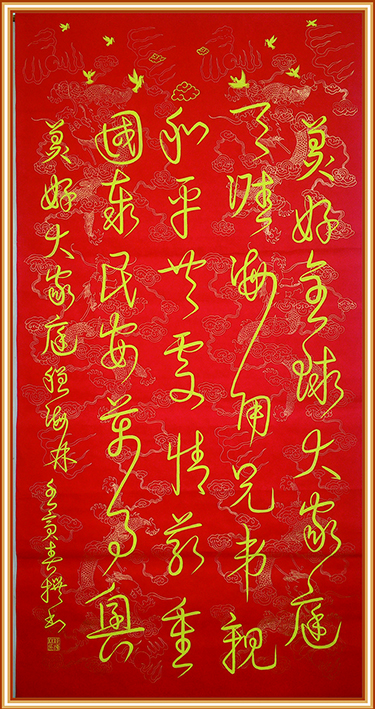 美好全球大家庭
天涯海角兄弟親
和平共處情義重
國泰民安萬事興
美好大家庭